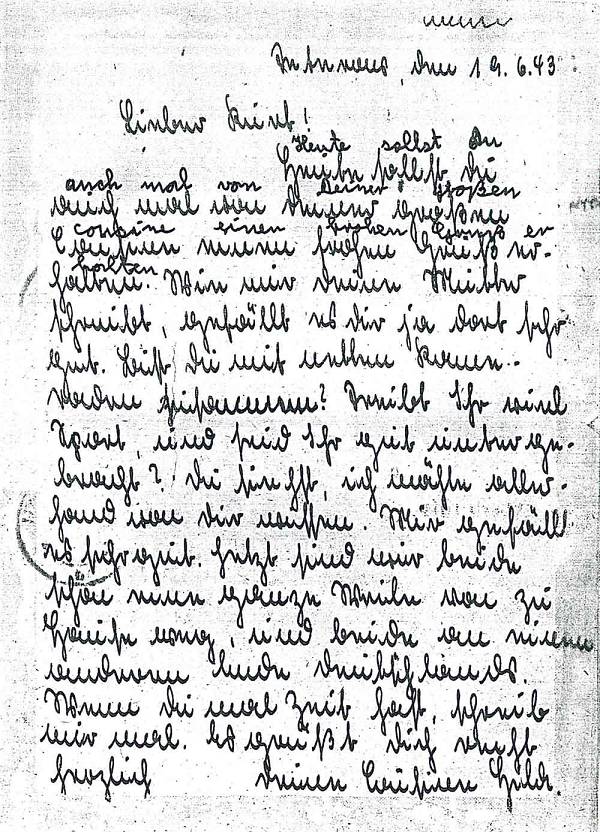 den 19.6.43
Lieber Kurt!
Heute sollst Du
Heute sollst du
auch mal von Deiner großen
auch mal von deiner großen
Cousine einen frohen Gruß er
Cousinen einen frohen Gruß er-
halten
halten. Wie mir deine Mutter
schreibt, gefällt es dir ja dort sehr
gut. Bist du mit netten Kame-
raden zusammen? Treibt Ihr viel
Sport, und seid Ihr gut unterge-
bracht? Du siehst, ich möchte aller-
hand von dir wissen. Mir gefällt
es sehr gut. Jetzt sind wir beide
schon eine ganze Weile von zu
Hause weg, und beide an einem
anderen Ende Deutschlands.
Wenn du mal Zeit hast, schreib
mir mal. Es grüßt dich recht
herzlich deine Cousine